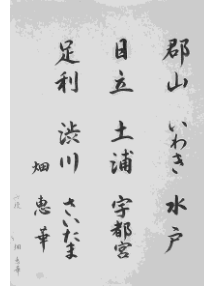 郡山 いわき 水戸
日立 土浦 宇都宮
足利 渋川 さいたま
畑 恵華